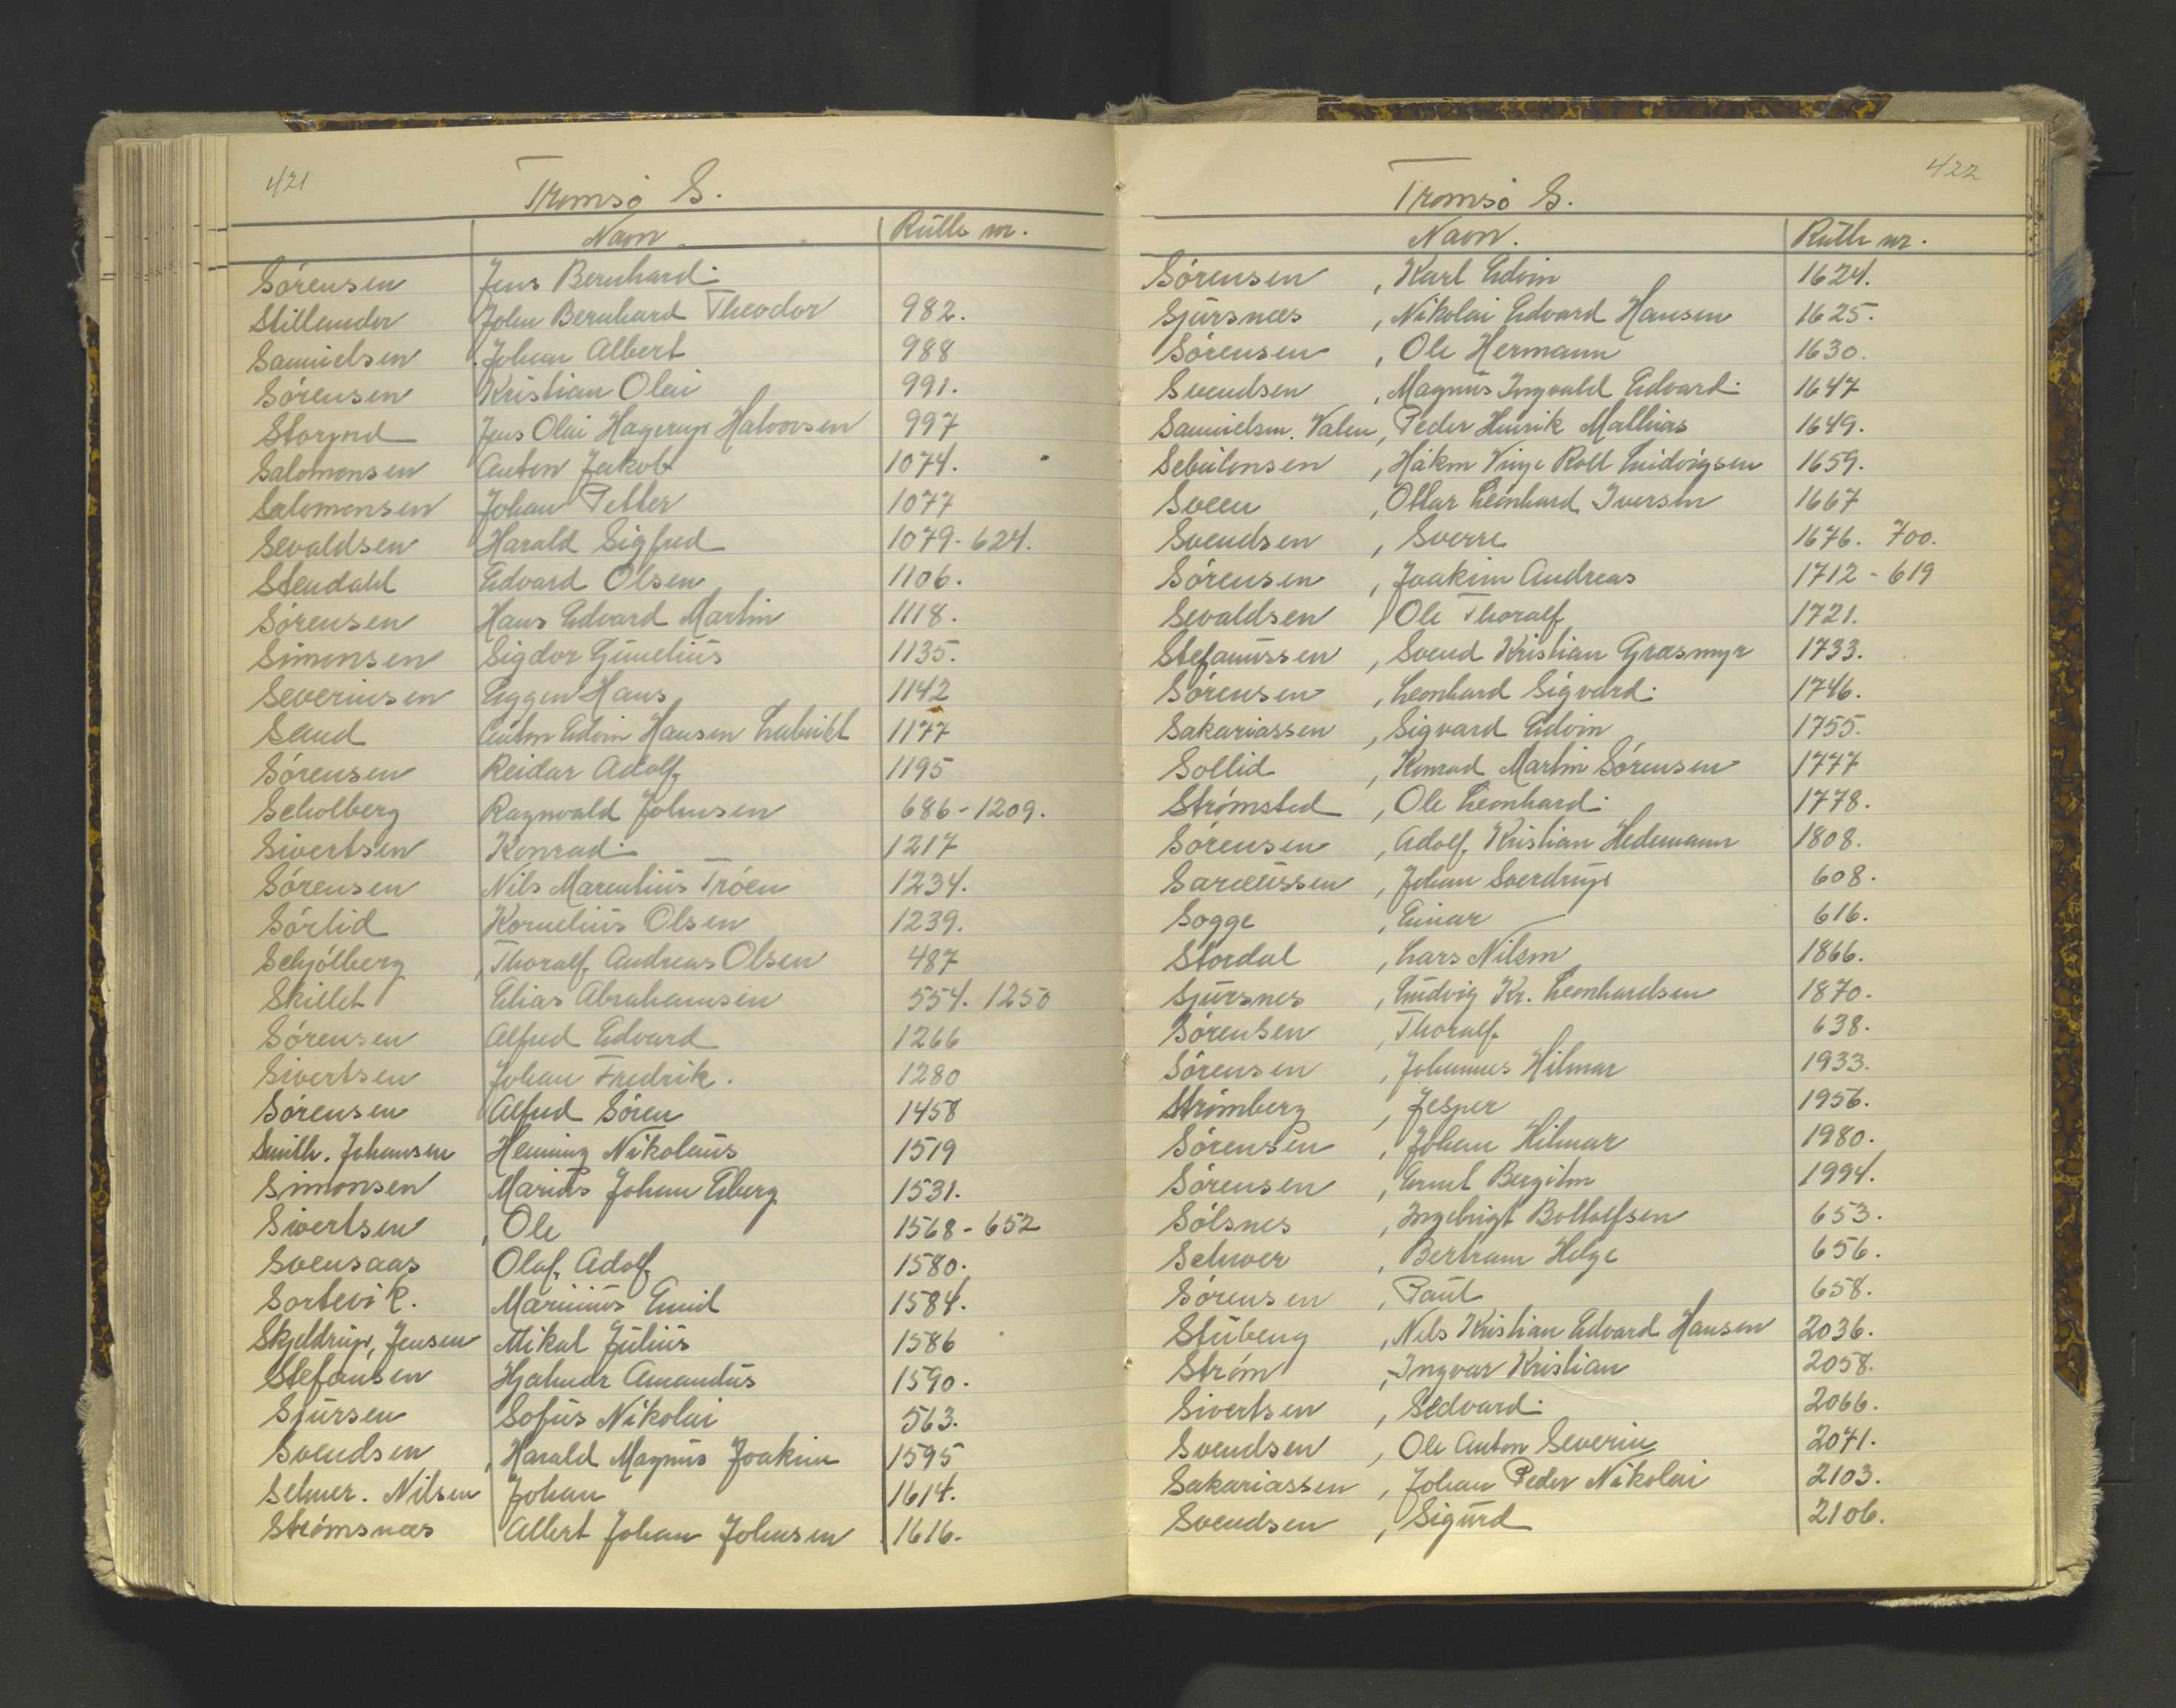 421
Tromsø S.
Navn. Rulle nr.
Sörensen Jens Bernhard.
Stillender John Bernhard Theodor 982.
Samuelsen Johan Albert 988
Sörensen Kristian Olai 991.
Storjord Jens Olai Hagerup Halvorsen 997
Salomonsen Anton Jakob 1074.
Salomonsen Johan Petter 1077
Sevaldsen Harald Sigfred 1079-624.
Stendahl Edvard Olsen 1106.
Sörensen Hans Edvard Martin 1118.
Simonsen Sigdor Gunelius 1135.
Severinsen Eggen Hans 1142
Sand Anton Edvin Hansen 1177
Sörensen Reidar Adolf 1195
Scholberg Ragnvald Johnsen 686-1209.
Sivertsen Konrad. 1217
Sörensen Nils Marentius Tröen 1234.
Sörlid Kornelius Olsen 1239.
Schjölberg, Thoralf Andreas Olsen 487
Skillet Elias Abrahamsen 554. 1250
Sörensen Alfred Edvard 1266
Sivertsen Johan Fredrik. 1280
Sörensen Alfred Sören 1458
Smith. Johansen Henning Nikolaus 1519
Simonsen Marius Johan Eberg 1531.
Sivertsen, Ole 1568-652
Svensaas Olaf Adolf 1580.
Sortevik. Marinius Emil 1584.
Skjeldrup, Jensen Mikal Julius 1586
Stefansen Hjalmar Amandus 1590.
Sjursen Sofus Nikolai 563.
Svendsen, Harald Magnus Joakim 1595
Selmer. Nilsen Johan 1614.
Strömsnæs Albert Johan Johnsen 1616.
422
Tromsö S.
Navn. Rulle nr.
Sörensen, Karl Edvin 1624.
Sjursnæs, Nikolai Edvard Hansen 1625.
Sörensen, Ole Hermann 1630.
Svendsen, Magnus Ingvald Edvard. 1647
Samuelsen. Valen, Peder Henrik Mathias 1649.
Sebulonsen, Håkon Vinje Roll Ludvigsen 1659.
Sveen, Ottar Leonhard Iversen 1667
Svendsen, Sverre 1676. 700.
Sörensen, Joakim Andreas 1712-619
Sevaldsen, Ole Thoralf 1721.
Stefanussen, Svend Kristian Græsmyr 1733.
Sörensen, Leonhard Sigvard. 1746.
Sakariassen, Sigvard Edvin 1755.
Sollid, Konrad Martin Sörensen 1777
Strömsted, Ole Leonhard. 1778.
Sörensen, Adolf Kristian Hedemann 1808.
Sareussen, Johan Sverdrup 608.
Sogge, Einar 616.
Stordal, Lars Nilsen 1866.
Sjursnes, Ludvig Kr. Leonhardsen 1870.
Sörensen, Thoralf 638.
Sörensen, Johannes Hilmar 1933.
Strömberg, Jesper 1956.
Sörensen, Johan Hilmar 1980.
Sörensen, Ernst Bergiton 1994.
Sölsnes, Ingebrigt Bottolfsen 653.
Schwer, Bertram Helge 656.
Sörensen, Paul 658.
Stuberg, Nils Kristian Edvard Hansen 2036.
Ström, Ingvar Kristian 2058.
Sivertsen, Sedvard. 2066.
Svendsen, Ole Anton Severin 2071.
Sakariassen, Johan Peder Nikolai 2103.
Svendsen, Sigurd 2106.